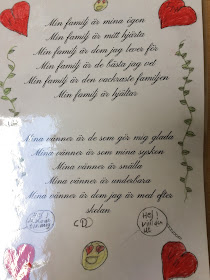 Min familj är mina ögon
Min familj är mitt hjärta
Min familj är dom jag lever för
Min familj är de bästa jag vet
Min familj är den vackraste familjen
Min familj är hjältar
Mina vänner är de som gör mig glada
Mina vänner är som mina syskon
Mina vänner är snälla
Mina vänner är underbara
Mina vänner är dem jag är med efter
skolan